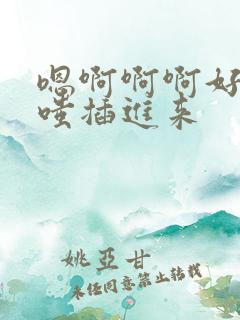 嗯啊啊啊好
嗤插进来
姚亞甘
未经同意禁止转载